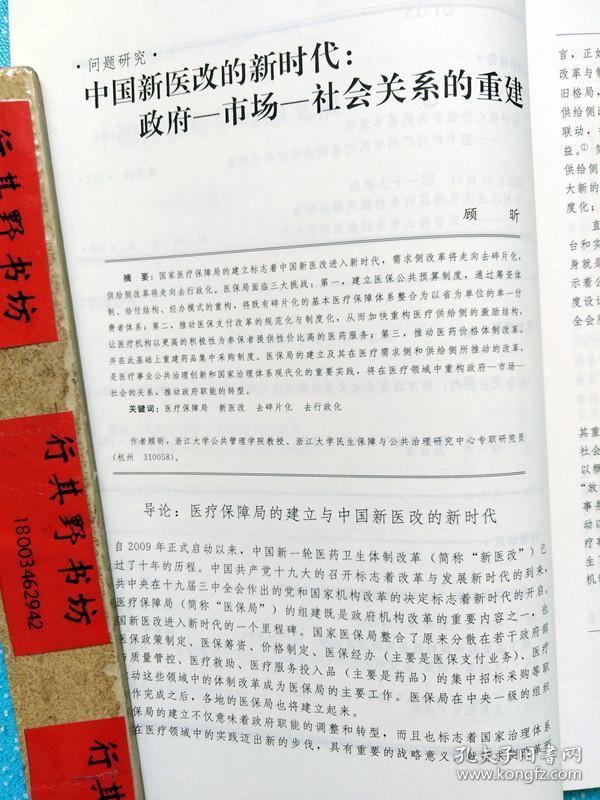 ·问题研究·
中国新医改的新时代：
政府—市场—社会关系的重建
顾 昕
摘 要：国家医疗保障局的建立标志着中国新医改进入新时代，需求侧改革将走向去碎片化，
供给侧改革将走向去行政化。医保局面临三大挑战：第一，建立医保公共预算制度，通过筹资体
制、给付结构、经办模式的重构，将既有碎片化的基本医疗保障体系整合为以省为单位的单一付
费者体系；第二，推动医保支付改革的规范化与制度化，从而加快重构医疗供给侧的激励结构，
让医疗机构以更高的积极性为参保者提供性价比高的医药服务；第三，推动医药价格体制改革，
并在此基础上重建药品集中采购制度。医保局的建立及其在医疗需求侧和供给侧所推动的改革，
是医疗事业公共治理创新和国家治理体系现代化的重要实践，将在医疗领域中重构政府—市场—
社会的关系，推动政府职能的转型。
关键词：医疗保障局 新医改 去碎片化 去行政化
作者顾昕，浙江大学公共管理学院教授、浙江大学民生保障与公共治理研究中心专职研究员
（杭州 310058）。
导论：医疗保障局的建立与中国新医改的新时代
自 2009 年正式启动以来，中国新一轮医药卫生体制改革（简称“新医改”）已
过了十年的历程。中国共产党十九大的召开标志着改革与发展新时代的到来，
共中央在十九届三中全会作出的党和国家机构改革的决定标志着新时代的开启。
医疗保障局（简称“医保局”）的组建既是政府机构改革的重要内容之一，也
国新医改进入新时代的一个里程碑。国家医保局整合了原来分散在若干政府部
医保政策制定、医保筹资、价格制定、医保经办（主要是医保支付业务）、医疗
质量管控、医疗救助、医疗服务投入品（主要是药品）的集中招标采购等职
动这些领域中的体制改革成为医保局的主要工作。医保局在中央一级的组织
作完成之后，各地的医保局也将建立起来。
保局的建立不仅意味着政府职能的调整和转型，而且也标志着国家治理体系
在医疗领域中的实践迈出新的步伐，具有重要的战略意义。
言，正如
改革与制
旧格局，
供给侧改
联动，
益。①
供给侧
大新的
度化；
台和实
身就是
示着公
度设计
全会所
其重
社会
以概
“放
事
动以
疗事
生了
机
行其野书坊
行其野书坊
18003462942
行其野书坊
孔夫子旧书网
www.kongfz.com